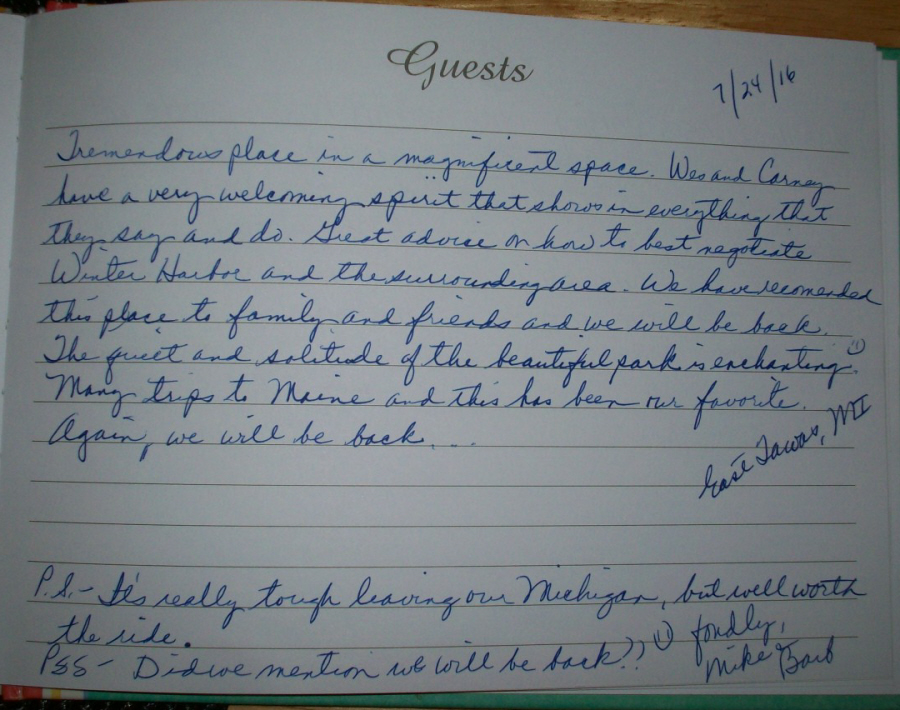 Guests
7/24/16
Tremendous place in a magnificent space. Wes and Carney
have a very welcoming spirit that shows in everything that
they say and do. Great advice on how to best negotiate
Winter Harbor and the surrounding area. We have recomended
this place to family and friends and we will be back.
The quiet and solitude of the beautiful park is enchanting.
Many trips to Maine and this has been our favorite.
Again, we will be back....
East Tawas, MI
P.S.- It's really tough leaving our Michigan, but well worth
the ride.
PSS- Did we mention we will be back??
fondly,
Mike & Barb